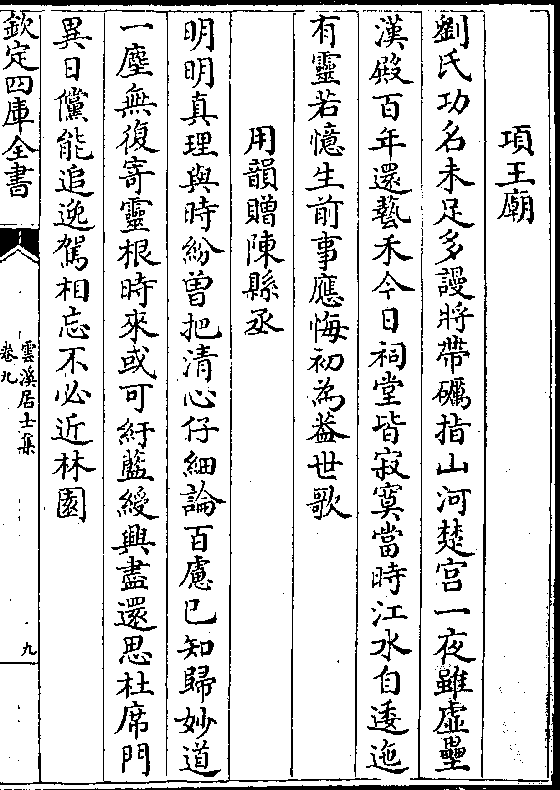 項王廟
劉氏功名未足多謾將帶礪指山河楚宫一夜雖虚壘
漢殿百年還藝禾今日祠堂皆寂寞當時江水自逶迤
有靈若憶生前事應悔初為蓋世歌
用韻贈陳縣丞
明明真理與時紛曽把清心仔細論百慮已知歸妙道
一塵無復寄靈根時來或可紆藍綬興盡還思杜席門
異日儻能追逸駕相忘不必近林園
欽定四庫全書
雲溪居士集
卷九
九